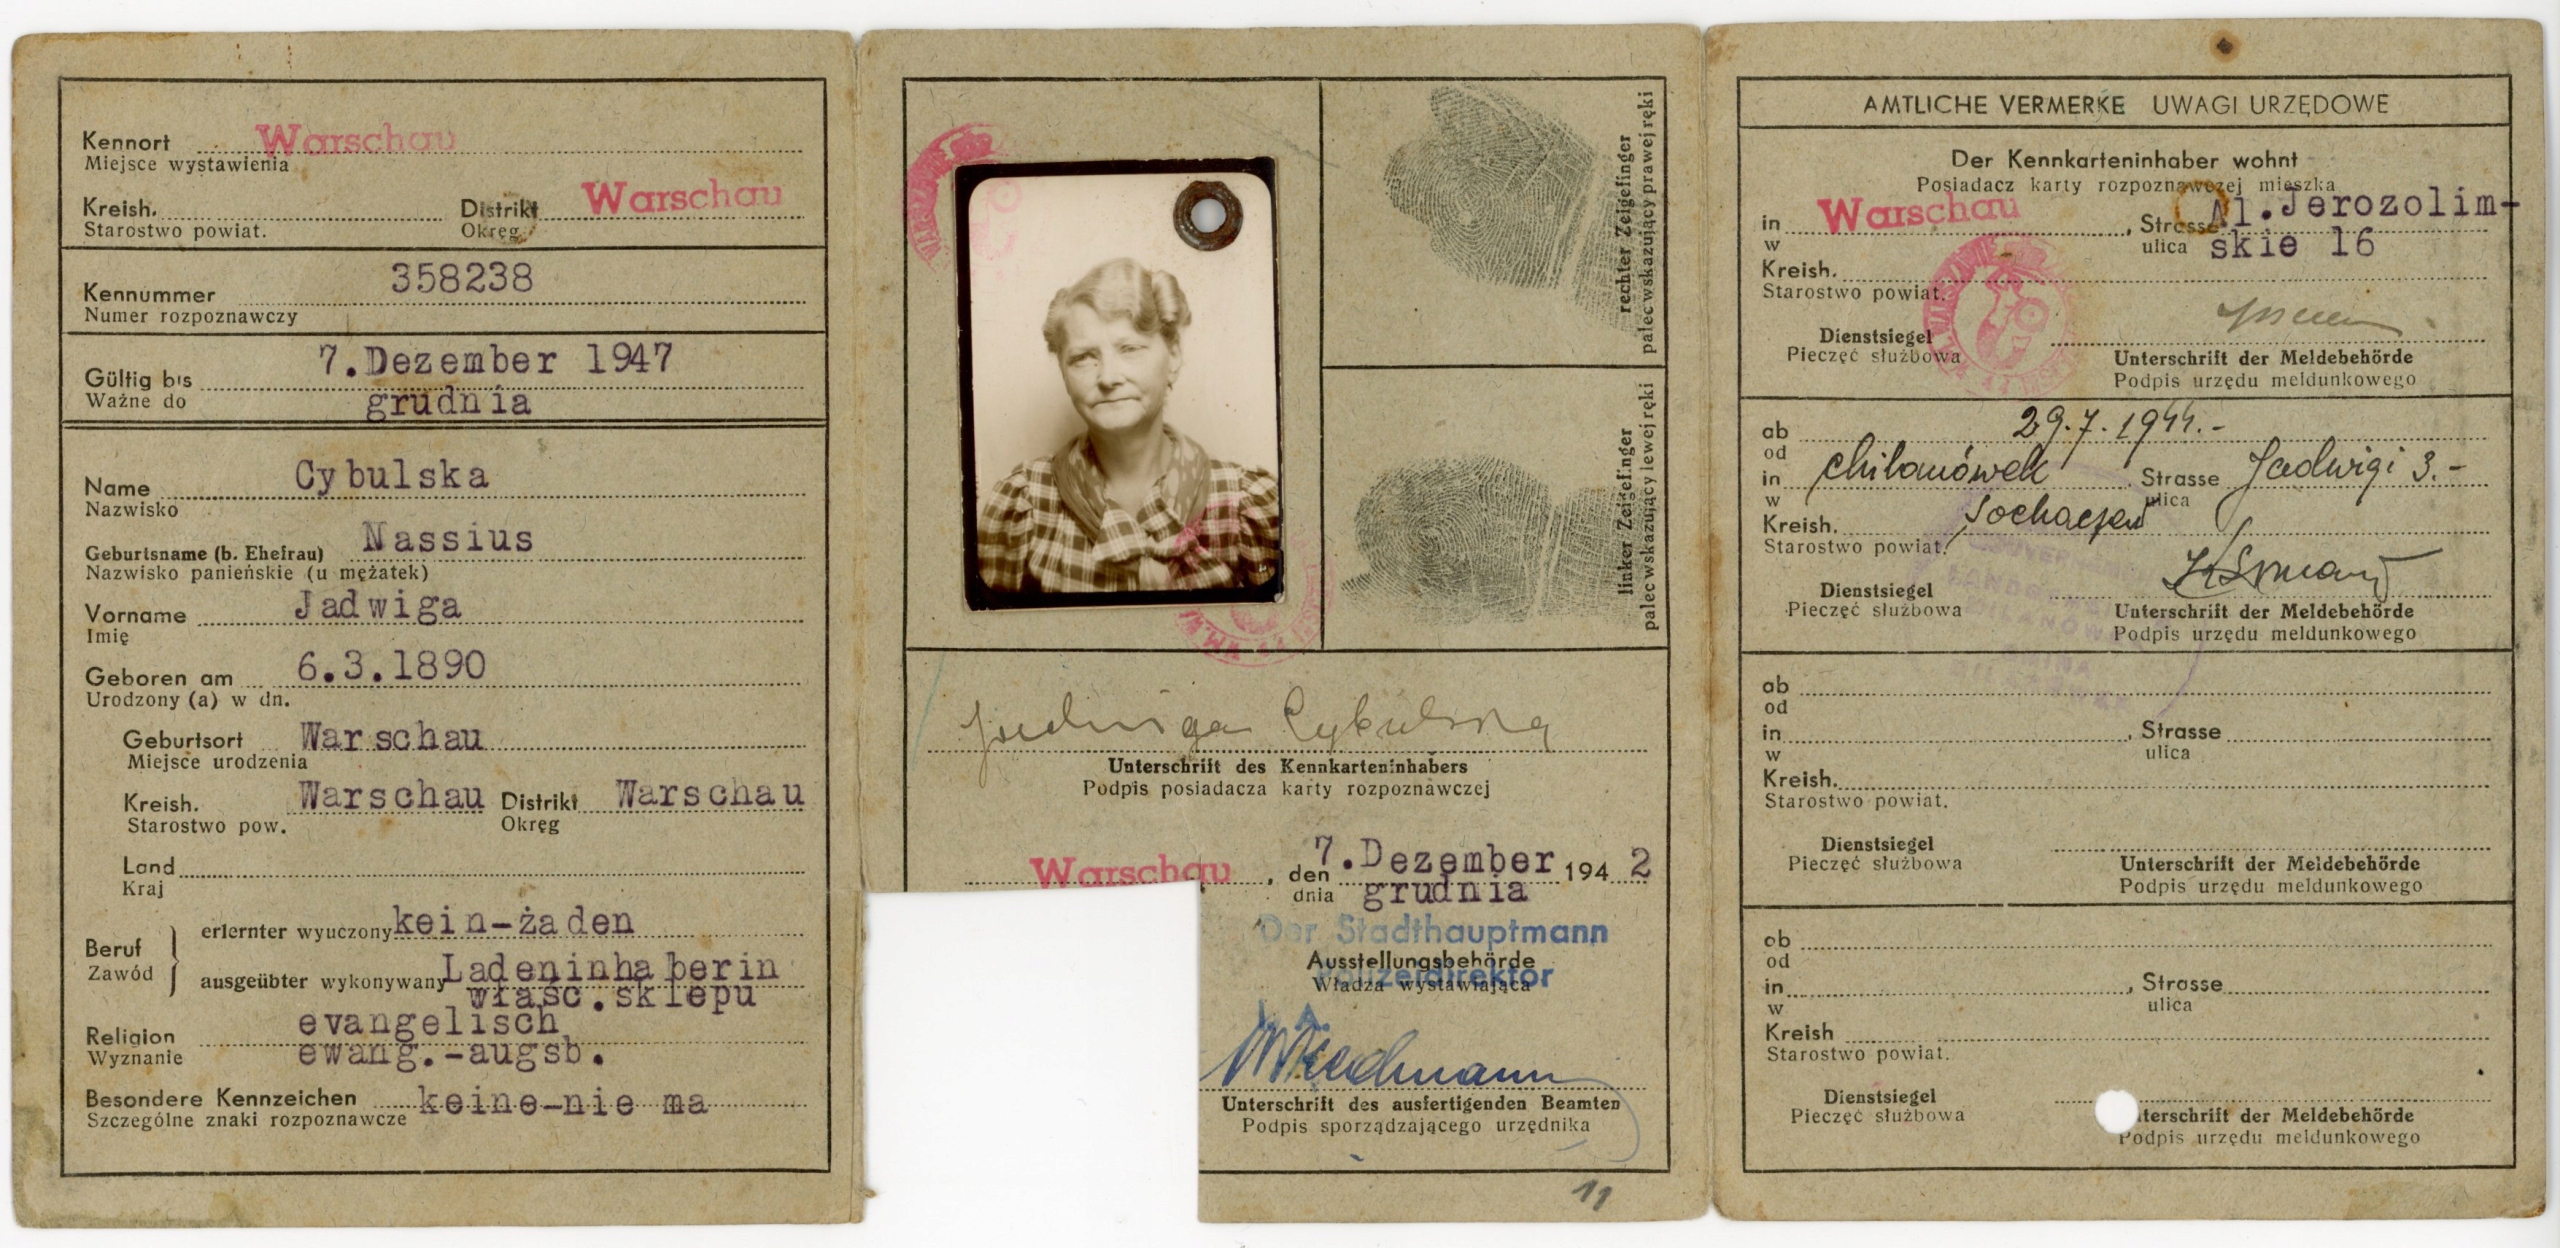 Kennort Warschau
Miejsce wystawienia
Kreish. Distrikt Warschau
Starostwo powiat. Okręg
358238
Kennummer
Numer rozpoznawczy
7.Dezember 1947
Gültig bis
Ważne do grudnia
Name Cybulska
Nazwisko
Geburtsname (b. Ehefrau) Nassius
Nazwisko panieńskie (u mężatek)
Vorname Jadwiga
Imię
Geboren am 6.3.1890
Urodzony (a) w dn.
Geburtsort Warschau
Miejsce urodzenia
Kreish. Warschau Distrikt Warschau
Starostwo pow. Okręg
Land
Kraj
Beruf
Zawód
erlernter wyuczony kein-żaden
ausgeübter wykonywany Ladeninhaberin
właśc.sklepu
evangelisch
Religion
Wyznanie ewang.-augsb.
Besondere Kennzeichen keine-nie ma
Szczególne znaki rozpoznawcze
rechter Zeigefinger
palec wskazujący prawej ręki
linker Zeigefinger
palec wskazujący lewej ręki
Jadwiga Cybulska
Unterschrift des Kennkarteninhabers
Podpis posiadacza karty rozpoznawczej
Warschau, den 7.Dezember 1942
dnia grudnia
Der Stadthauptmann
Ausstellungsbehörde
Polizeidirektor
Władza wystawiająca
I. A.
Unterschrift des ausfertigenden Beamten
Podpis sporządzającego urzędnika
11
AMTLICHE VERMERKE UWAGI URZĘDOWE
Der Kennkarteninhaber wohnt
Posiadacz karty rozpoznawczej mieszka
in Warschau, Strasse Al.Jerozolim-
w ulica skie 16
Kreish.
Starostwo powiat.
Dienstsiegel
Pieczęć służbowa
Unterschrift der Meldebehörde
Podpis urzędu meldunkowego
ab 29.7.1944.-
od
in Milanówek Strasse Jadwigi 3.-
w ulica
Kreish. Sochaczew
Starostwo powiat.
Dienstsiegel
Pieczęć służbowa
Unterschrift der Meldebehörde
Podpis urzędu meldunkowego
ab
od
in , Strasse
w ulica
Kreish.
Starostwo powiat.
Dienstsiegel
Pieczęć służbowa
Unterschrift der Meldebehörde
Podpis urzędu meldunkowego
ab
od
in , Strasse
w ulica
Kreish
Starostwo powiat.
Dienstsiegel
Pieczęć służbowa
terschrift der Meldebehörde
Podpis urzędu meldunkowego